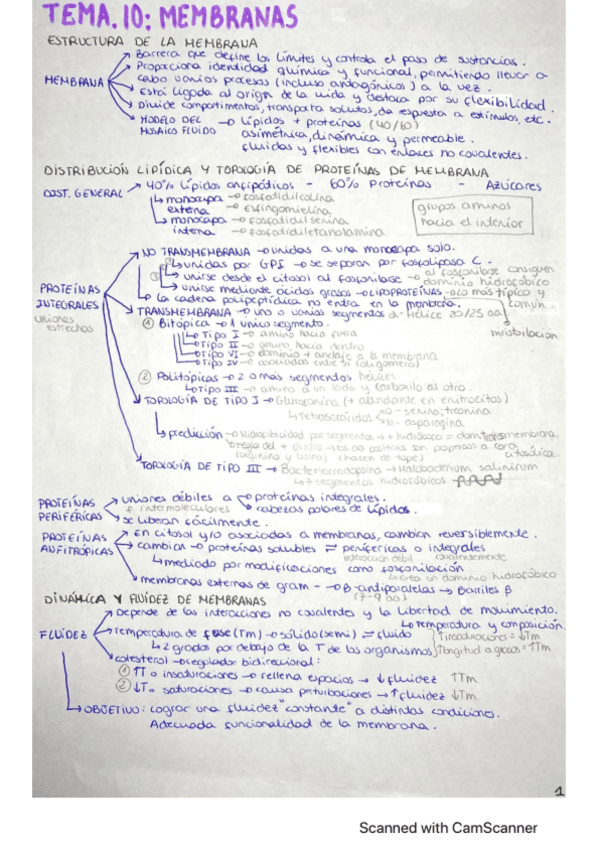 TEMA.10: MEMBRANAS
ESTRUCTURA DE LA MEMBRANA
MEMBRANA
Barrera que define los límites y controla el paso de sustancias.
Proporciona identidad química y funcional, permitiendo llevar a
cabo varios procesos (incluso antagónicos) a la vez.
Está ligada al origen de la vida y destaca por su flexibilidad.
Divide compartimentos, transporta solutos, da respuesta a estímulos, etc.
MODELO DEL MOSAICO FLUIDO → Lípidos + proteínas (40/60)
asimétrica, dinámica y permeable.
fluidas y flexibles con enlaces no covalentes.
DISTRIBUCIÓN LIPÍDICA Y TOPOLOGÍA DE PROTEÍNAS DE MEMBRANA
DIST. GENERAL → 40% Lípidos anfipáticos - 60% Proteínas - Azúcares
monocapa externa → fosfatidilcolina
→ esfingomielina
monocapa interna → fosfatidilserina
→ fosfatidiletanolamina
grupos aminos
hacia el interior
PROTEÍNAS INTEGRALES
uniones estrechas
NO TRANSMEMBRANA → unidas a una monocapa solo.
unidas por GPI → se separan por fosfolipasa C.
unirse desde el citosol al fosforilarse → al fosforilarse consiguen
dominio hidrofóbico
unirse mediante ácidos grasos → LIPOPROTEÍNAS → lo más típico y
común
La cadena polipeptídica no entra en la membrana.
miristoilación
TRANSMEMBRANA → uno o varios segmentos α-hélice 20/25 aa.
① Bitópica → 1 único segmento.
Tipo I → amino hacia fuera
Tipo II → amino hacia dentro
Tipo VI → dominio + anclaje a la membrana
Tipo IV → asociadas entre sí (oligómero)
② Politópicas → 2 o más segmentos hélices
Tipo III → amino a un lado y carboxilo al otro.
TOPOLOGÍA DE TIPO I → Glucoforina (+ abundante en eritrocitos)
Tetrasacáridos O - serina; treonina
N - asparagina
predicción → Hidrofobicidad por segmentos → + hidrofóbico = dom. transmembrana.
dentro → los aa positivos son propensos a cara
citosólica.
(arginina y lisina) (hacen de tope)
TOPOLOGÍA DE TIPO III → Bacteriorrodopsina → Halobacterium salinirum
segmentos hidrofóbicos
PROTEÍNAS PERIFÉRICAS
uniones débiles a → proteínas integrales.
F intermoleculares → cabezas polares de lípidos.
se liberan fácilmente.
PROTEÍNAS ANFITRÓPICAS
En citosol y/o asociadas a membranas, cambian reversiblemente.
cambian → proteínas solubles ⇌ periféricas o integrales
interacción débil covalentemente
mediado por modificaciones como fosforilación
crea un dominio hidrofóbico
membranas externas de gram - → β-antiparalelas → Barriles β
DINÁMICA Y FLUIDEZ DE MEMBRANAS
FLUIDEZ
Depende de las interacciones no covalentes y la libertad de movimiento.
Temperatura y composición.
Temperatura de fase (Tm) → sólido (semi) ⇌ fluido
↑insaturaciones = ↓Tm
2 grados por debajo de la T de los organismos
↑longitud a.grasos = ↑Tm
colesterol → regulador bidireccional:
① ↑T o insaturaciones → rellena espacios → ↓ fluidez ↑Tm
② ↓T o saturaciones → causa perturbaciones → ↑ fluidez ↓Tm
OBJETIVO: lograr una fluidez "constante" a distintas condiciones.
Adecuada funcionalidad de la membrana.
1
Scanned with CamScanner